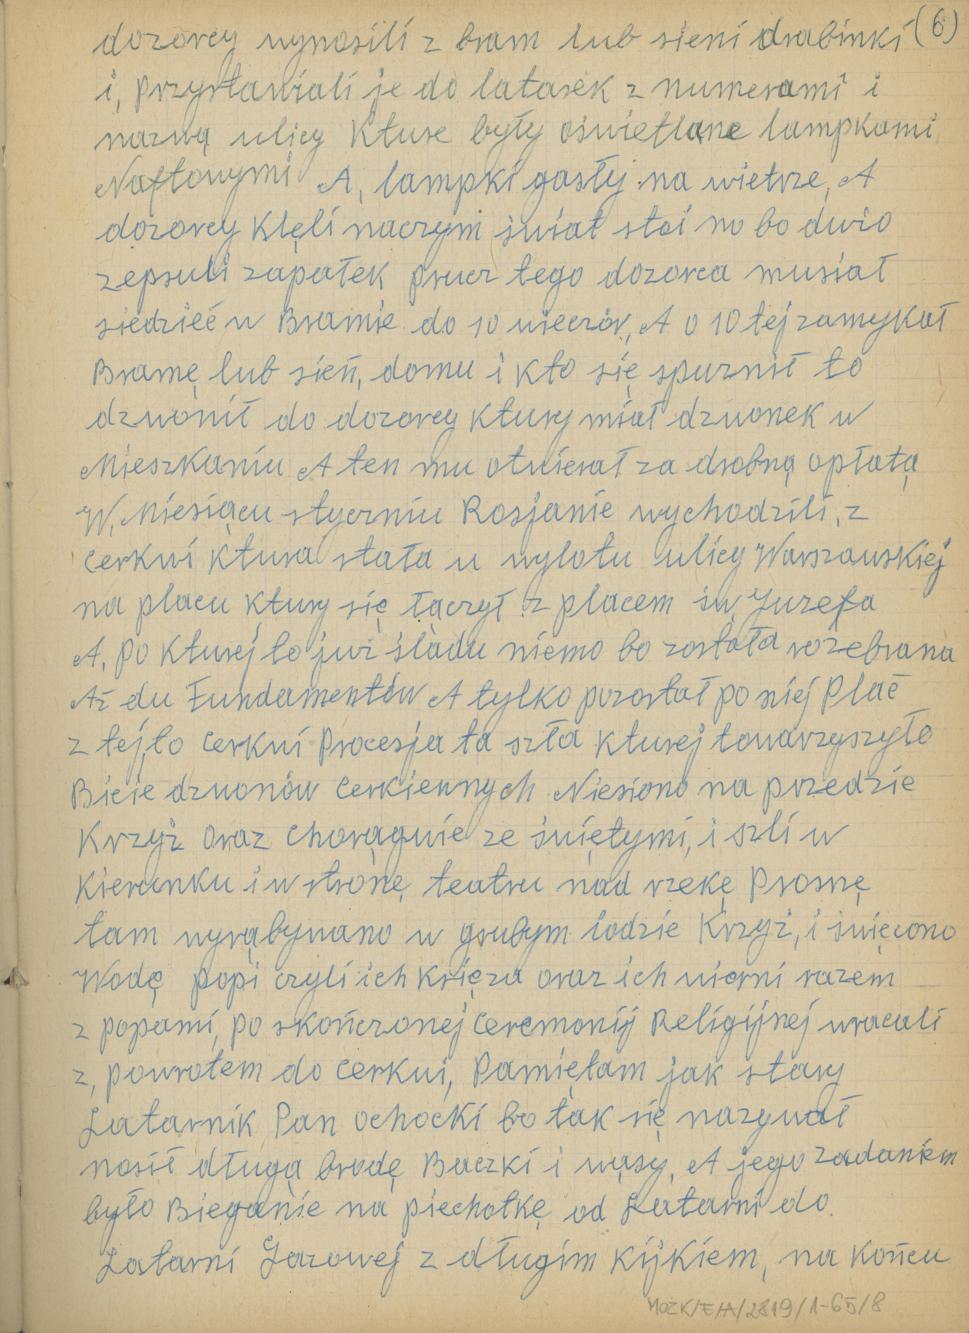 (6)
dozorcy wynosili z bram lub sieni drabinki
i, przystawiali je do latarek z numerami i
nazwą ulicy kture były oświetlane lampkami
Naftowymi A, lampki gasły na wietrze, A
dozorcy klęli naczym świat stoi no bo dużo
zepsuli zapałek prucz tego dozorca musiał
siedzieć w Bramie do 10 wieczór, A o 10 tej zamykał
Bramę lub sień, domu i kto się spuznił to
dzwonił do dozorcy ktury miał dzwonek w
Mieszkaniu A ten mu otwierał za drobną opłatą
W, Miesiącu styczniu Rosjanie wychodzili, z
cerkwi ktura stała u wylotu ulicy Warszawskiej
na placu ktury się łączył z placem św, Juzefa
A, po kturej to już śladu niema bo została rozebrana
Aż du Fundamentów A tylko pozostał po niej Plac
z tej, to cerkwi Procesja ta szła kturej towarzyszyło
Bicie dzwonów cerkiewnych Niesiono na przedzie
Krzyż oraz chorągwie ze świętymi, i szli w
kierunku i w stronę, teatru nad rzekę Prosnę
tam wyrąbywano w grubym lodzie Krzyż, i święcono
Wodę popi czyli ich księża oraz ich wierni razem
z popami, po skończonej Ceremonij Religijnej wracali
z, powrotem do cerkwi, Pamiętam jak stary
Latarnik Pan Ochocki bo tak się nazywał
nosił długą brodę Baczki i wąsy, A jego zadaniem
było Bieganie na piechotkę od Latarni do
Latarni Gazowej z długim kijkiem, na końcu
MOZK/E/A/2819/1-65/8